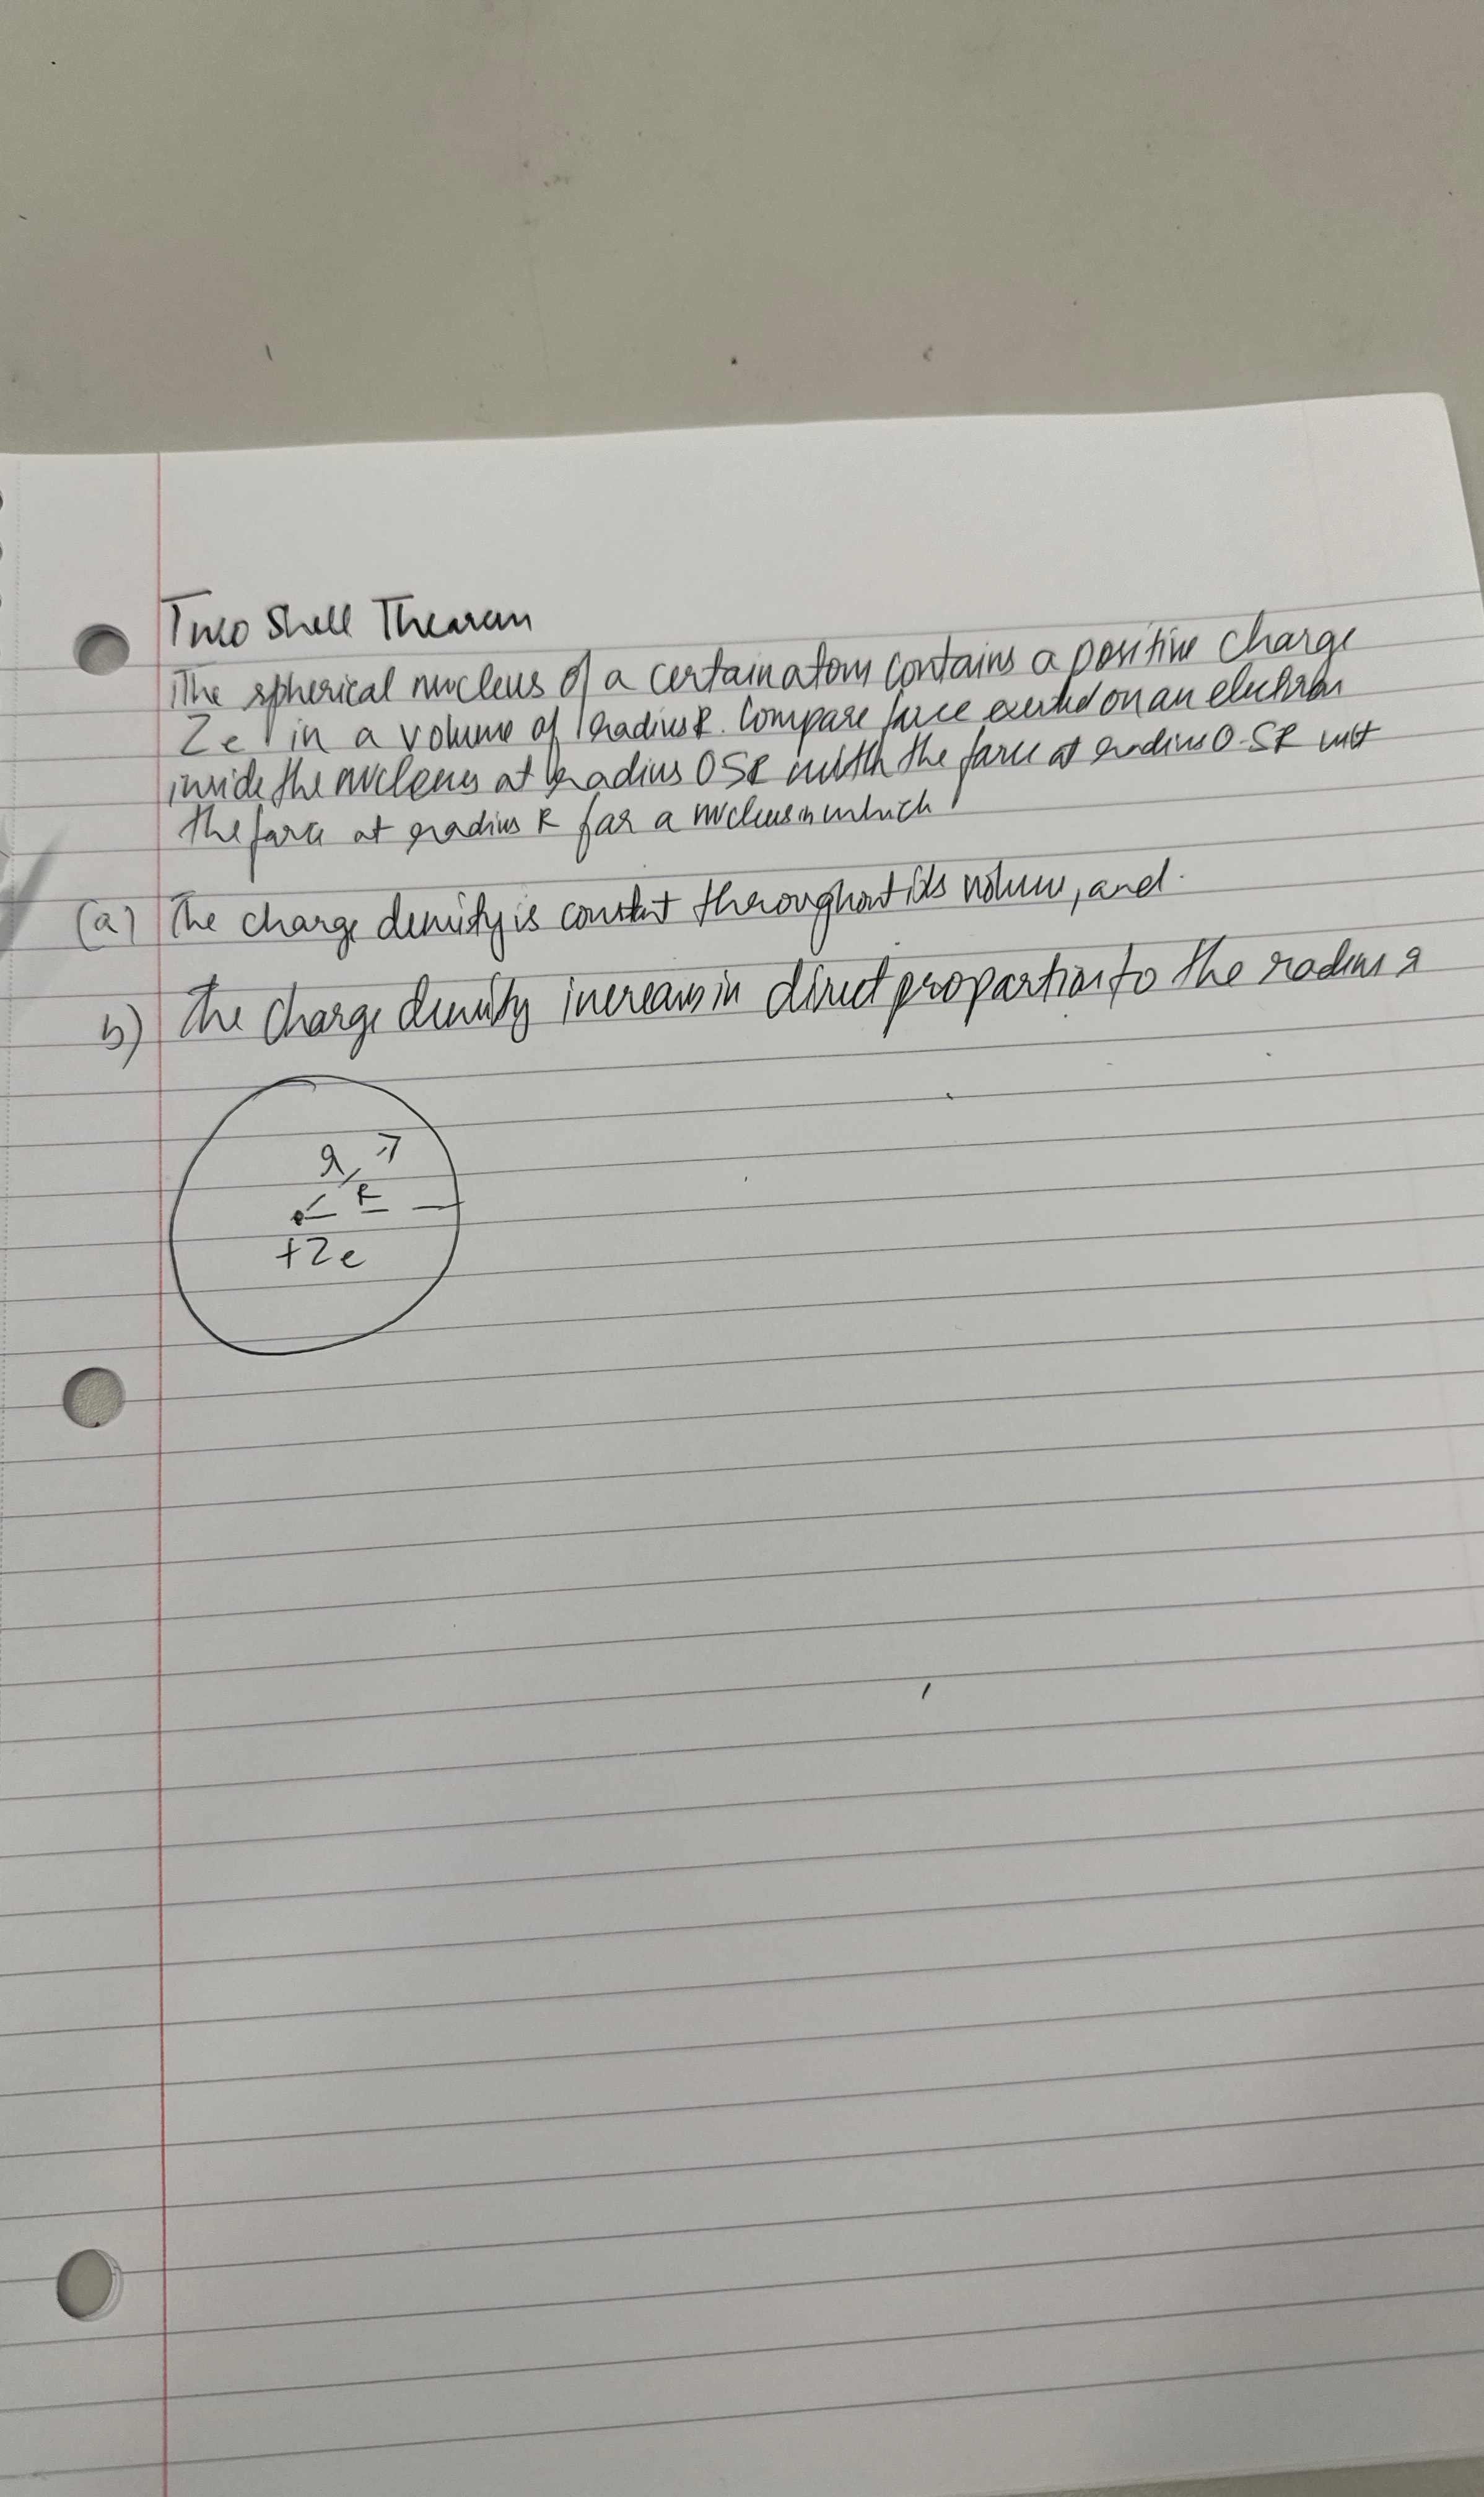 Two Shell Thearem
The spherical nucleus of a certain atom contains a positive charge
Ze in a volume of radius R. Compare force exerted on an electron
inside the nucleus at radius 0.5R with the force at radius 0.5R with
the force at radius R for a nucleus in which
(a) The charge density is constant throughout its volume, and.
b) the charge density increases in direct proportion to the radius r
r
R
+Ze